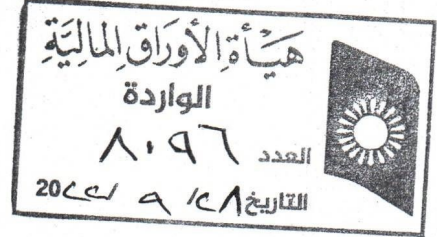 هَيْأَةِ الأَوْرَاقِ المَالِيَّةِ
الواردة
العدد ٨٠٩٦
التاريخ ٢٨/ ٩ /20٢٢